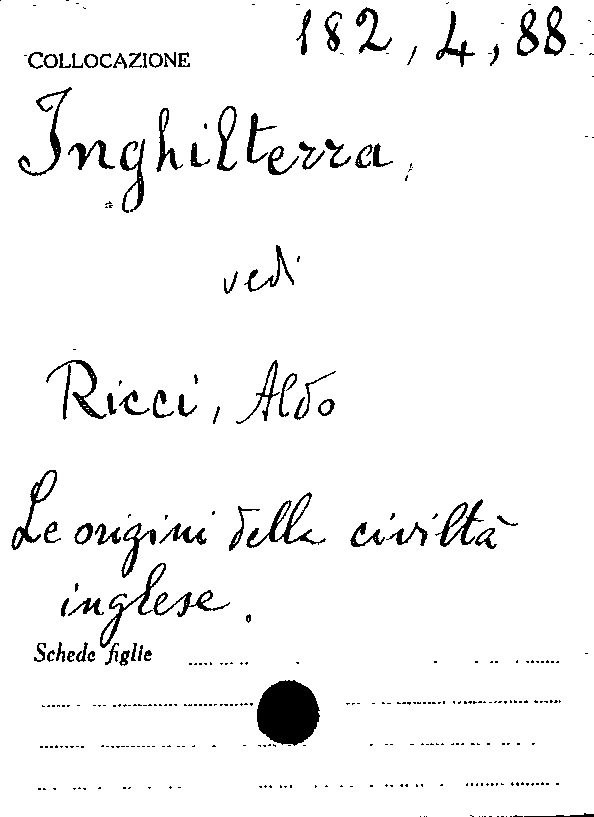 182, 4, 88
COLLOCAZIONE
Inghilterra,
vedi
Ricci, Aldo
Le origini della civiltà
inglese.
Schede figlie